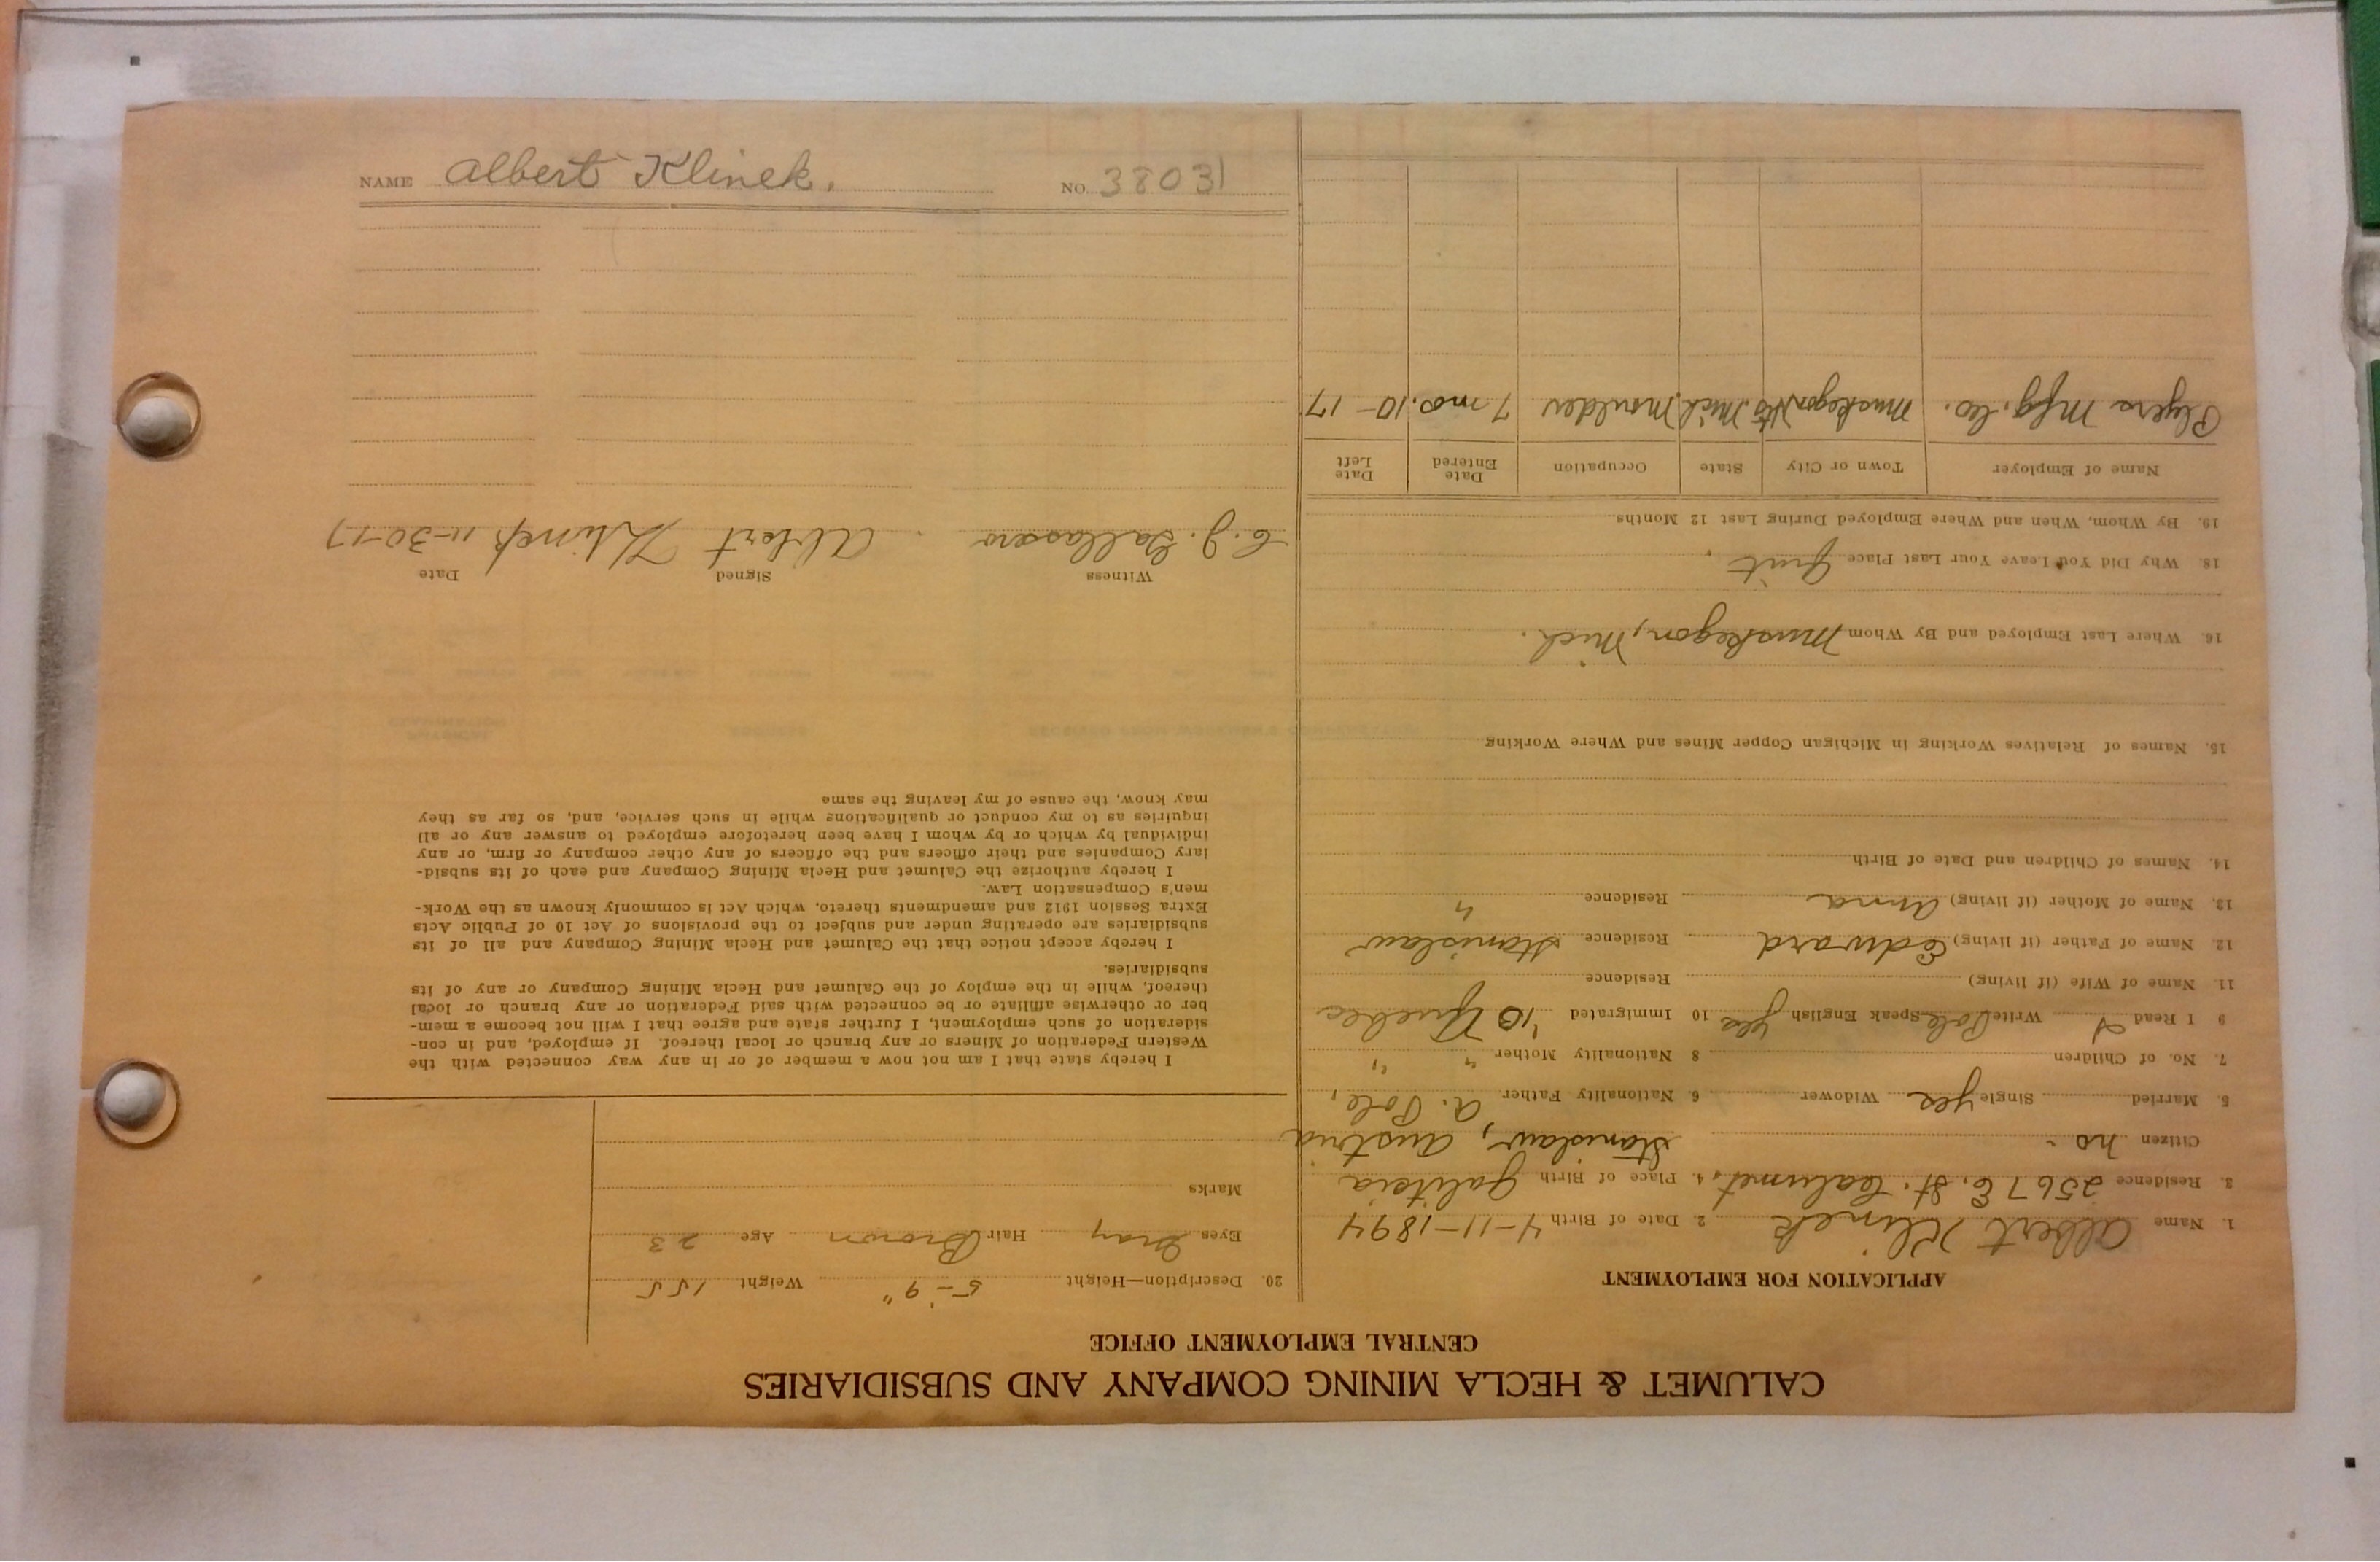 CALUMET & HECLA MINING COMPANY AND SUBSIDIARIES
CENTRAL EMPLOYMENT OFFICE
APPLICATION FOR EMPLOYMENT
1. Name Albert Klinek 2. Date of Birth 4-11-1894
3. Residence 2567 E. St. Calumet, 4. Place of Birth Galitcia
Citizen no. Stanislaw, Austria
5. Married Single yes Widower 6. Nationality Father a. Pole,
7. No. of Children 8 Nationality Mother " "
9 I Read Write Pole Speak English yes 10 Immigrated '10 Quebec
11. Name of Wife (if living) Residence
12. Name of Father (if living) Edward Residence Stanislaw
13. Name of Mother (if living) Anna Residence "
14. Names of Children and Date of Birth
15. Names of Relatives Working in Michigan Copper Mines and Where Working
16. Where Last Employed and By Whom Muskegon, Mich.
18. Why Did You Leave Your Last Place Quit.
19. By Whom, When and Where Employed During Last 12 Months
Name of Employer Town or City State Occupation Date Entered Date Left
Mfg. Co. Muskegon Hts Mich. Moulder 7 mo. 10-17
20. Description—Height 5-'9" Weight 155
Eyes Gray Hair Brown Age 23
Marks
I hereby state that I am not now a member of or in any way connected with the
Western Federation of Miners or any branch or local thereof. If employed, and in con-
sideration of such employment, I further state and agree that I will not become a mem-
ber or otherwise affiliate or be connected with said Federation or any branch or local
thereof, while in the employ of the Calumet and Hecla Mining Company or any of its
subsidiaries.
I hereby accept notice that the Calumet and Hecla Mining Company and all of its
subsidiaries are operating under and subject to the provisions of Act 10 of Public Acts
Extra Session 1912 and amendments thereto, which Act is commonly known as the Work-
men's Compensation Law.
I hereby authorize the Calumet and Hecla Mining Company and each of its subsid-
iary Companies and their officers and the officers of any other company or firm, or any
individual by which or by whom I have been heretofore employed to answer any or all
inquiries as to my conduct or qualifications while in such service, and, so far as they
may know, the cause of my leaving the same
Witness Signed Date
Albert Klinek 11-30-17
NAME Albert Klinek. NO. 38031